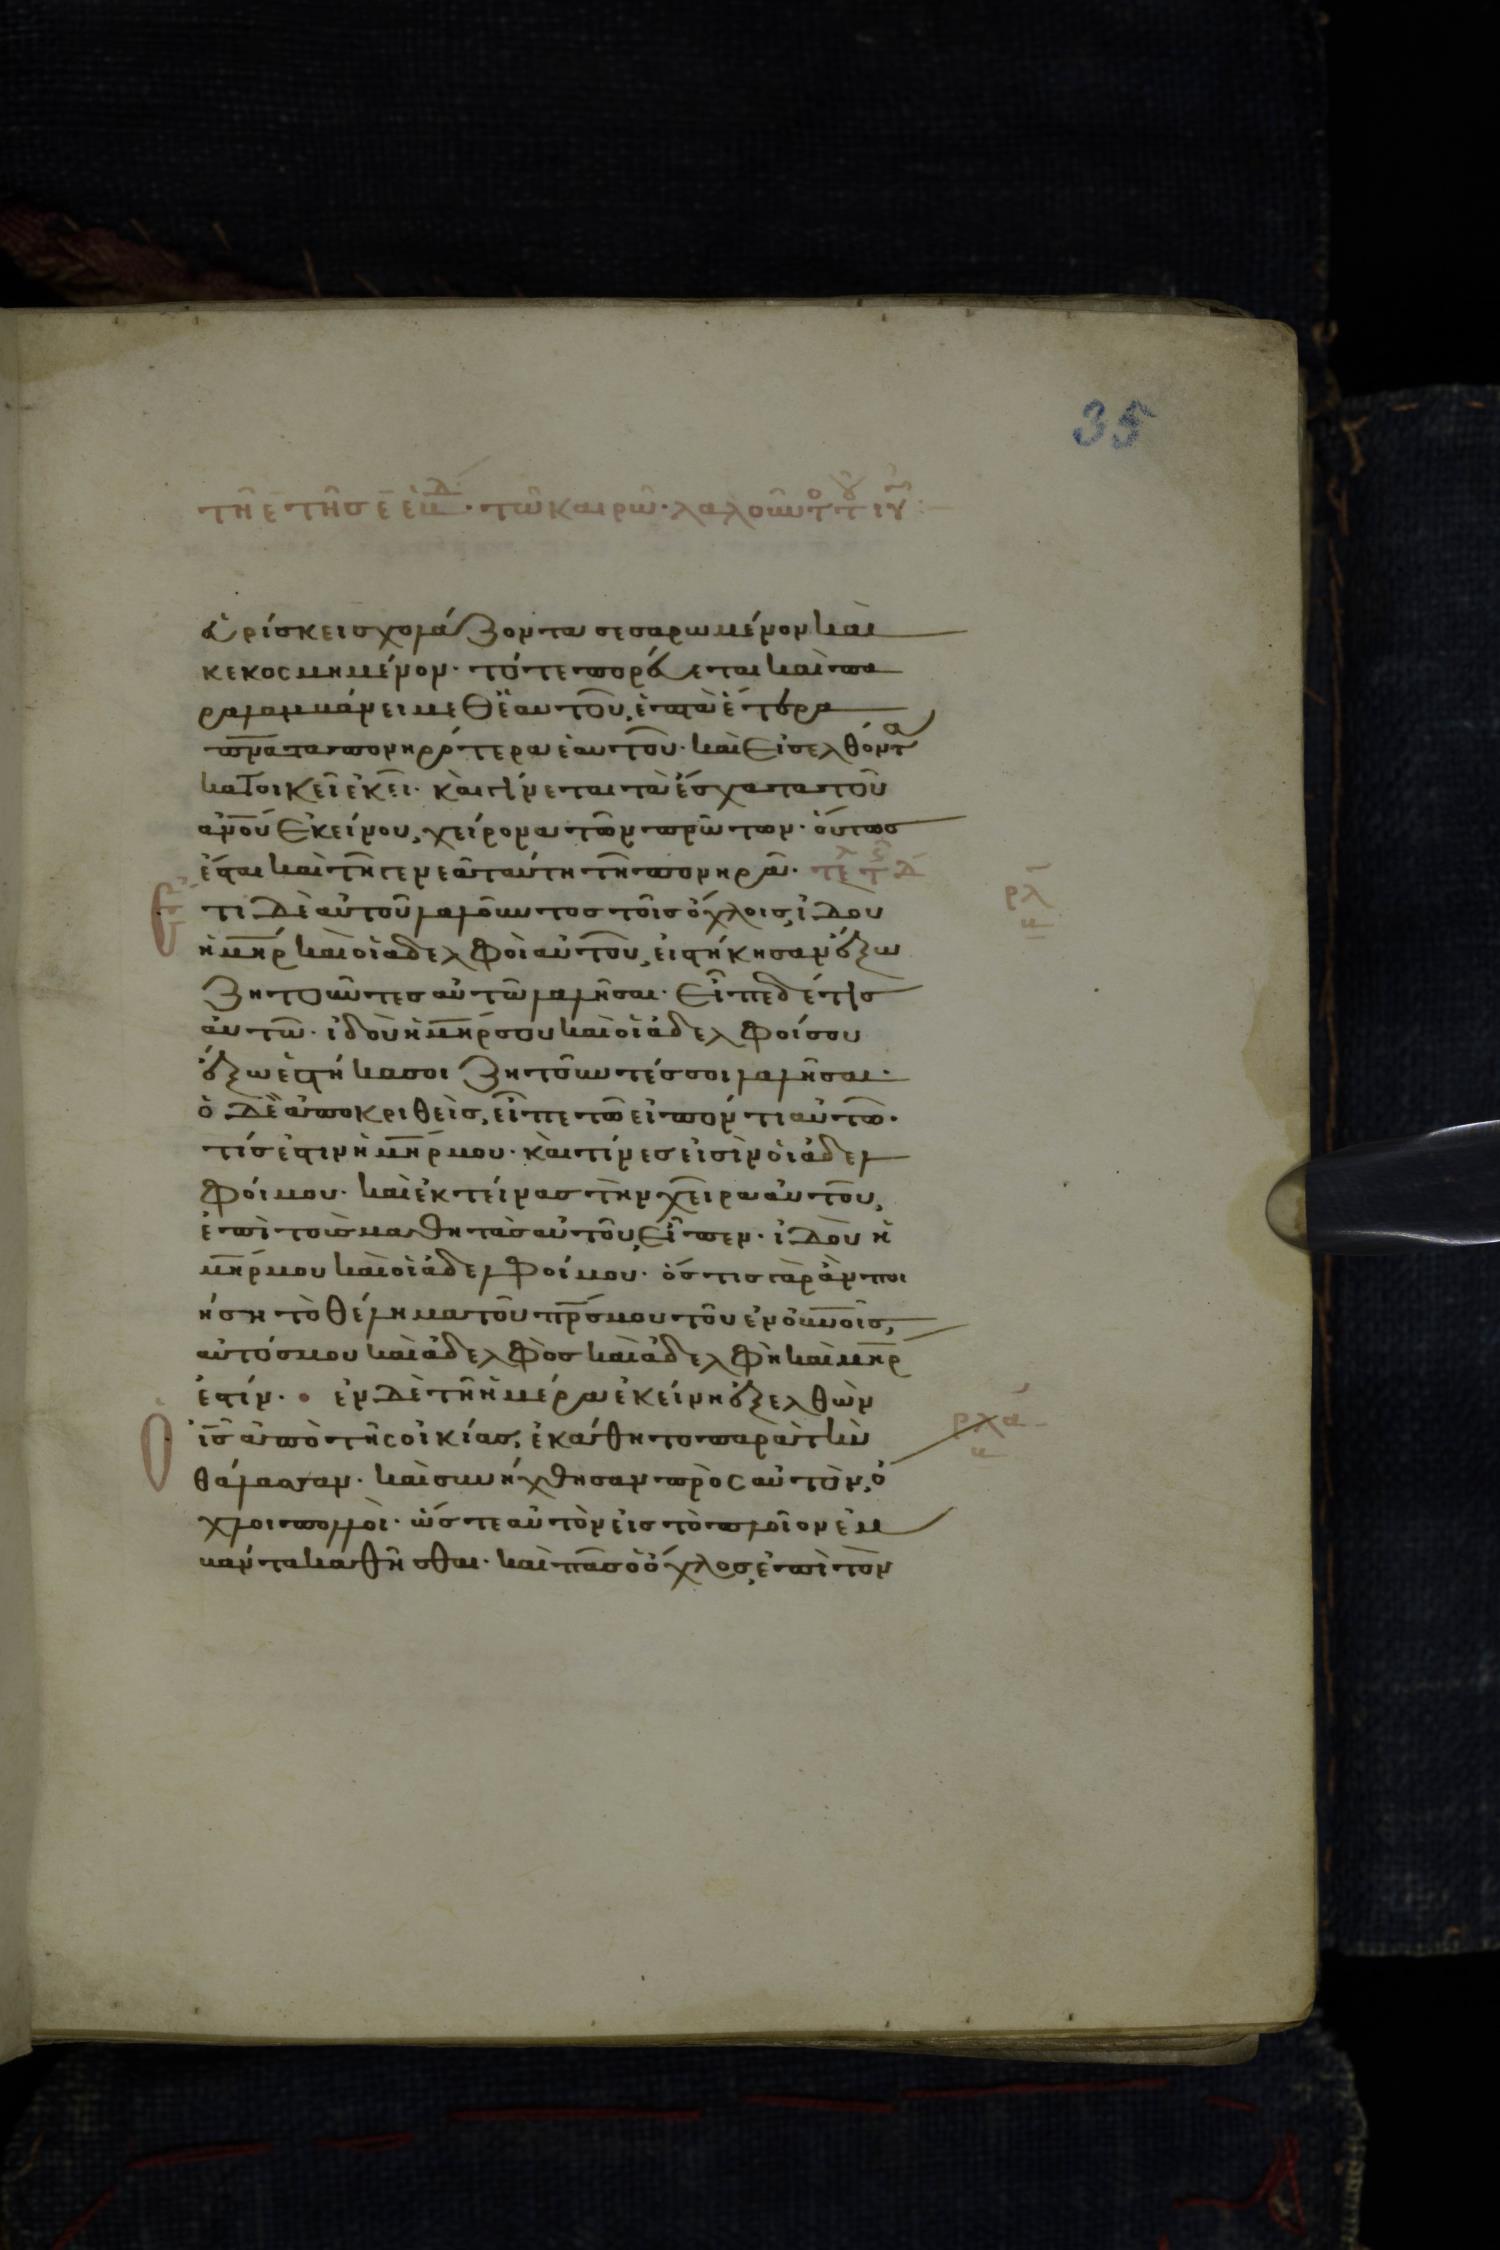 35
τῆ ε τῆσ ε ἑβδ · τῶ καιρῶ · λαλοῦντ τοῦ ιυ
εὑρίσκει σχολάζοντα σεσαρωμένον καὶ
κεκοσμημένον · τότε πορεύεται καὶ πα
ραλαμβάνει μεθ ἑαυτοῦ, ἑπτὰ ἕτερα
πνατα πονηρότερα ἑαυτοῦ · καὶ εἰσελθόντα
κατοικεῖ ἐκεῖ · καὶ γίνεται τὰ ἔσχατα τοῦ
ανου ἐκείνου, χείρονα τῶν πρώτων · οὕτωσ
ἔσται καὶ τῆ γενεᾶ ταύτη τῆ πονηρᾶ · τελ
τι δὲ αὐτοῦ λαλοῦντοσ τοῖσ ὄχλοισ, ἰδου
ἡ μηρ καὶ οἱ αδελφοὶ αὐτοῦ, εἱστήκησαν ἔξω
ζητοῦντεσ αὐτῶ λαλῆσαι · εἶπε δέ τισ
αὐτῶ · ἰδοὺ ἡ μηρ σου καὶ οἱ ἀδελφοί σου
ἔξω ἑστήκασοι ζητοῦντέσ σοι λαλῆσαι ·
ὁ δὲ ἀποκριθεὶσ, εἶπε τῶ εἰπόντι αὐτῶ ·
τίσ ἐστιν ἡ μηρ μου · καὶ τίνεσ εἰσὶν ὁι ἀδελ
φόι μου · καὶ ἐκτείνασ τὴν χεῖρα αὐτοῦ,
ἐπὶ τοὺσ μαθητὰσ αὐτοῦ, εἶπεν · ἰδοὺ ἡ
μηρ μου καὶ οἱ ἀδελφοί μου · ὅστισ γὰρ ἂν ποι
ήση τὸ θέλημα τοῦ πρσ μου τοῦ ἐν οὐνοῖσ,
αὐτόσ μου καὶ ἀδελφὸσ καὶ ἀδελφὴ καὶ μηρ
ἐστίν · ἐν δὲ τῆ ἡμέρα ἐκείνη ἐξελθὼν
ὁ ισ ἀπὸ τῆσ οἰκίασ, ἐκάθητο παρὰ τὴν
θάλασσαν · καὶ συνήχθησαν πρὸσ αὐτὸν, ὄ
χλοι πολλοὶ · ὥστε αὐτὸν εἰσ τὸ πλοῖον ἐμ
βάντα καθῆσθαι · καὶ πᾶσ ὁ ὄχλοσ, ἐπὶ τὸν
ρλ
ρλα